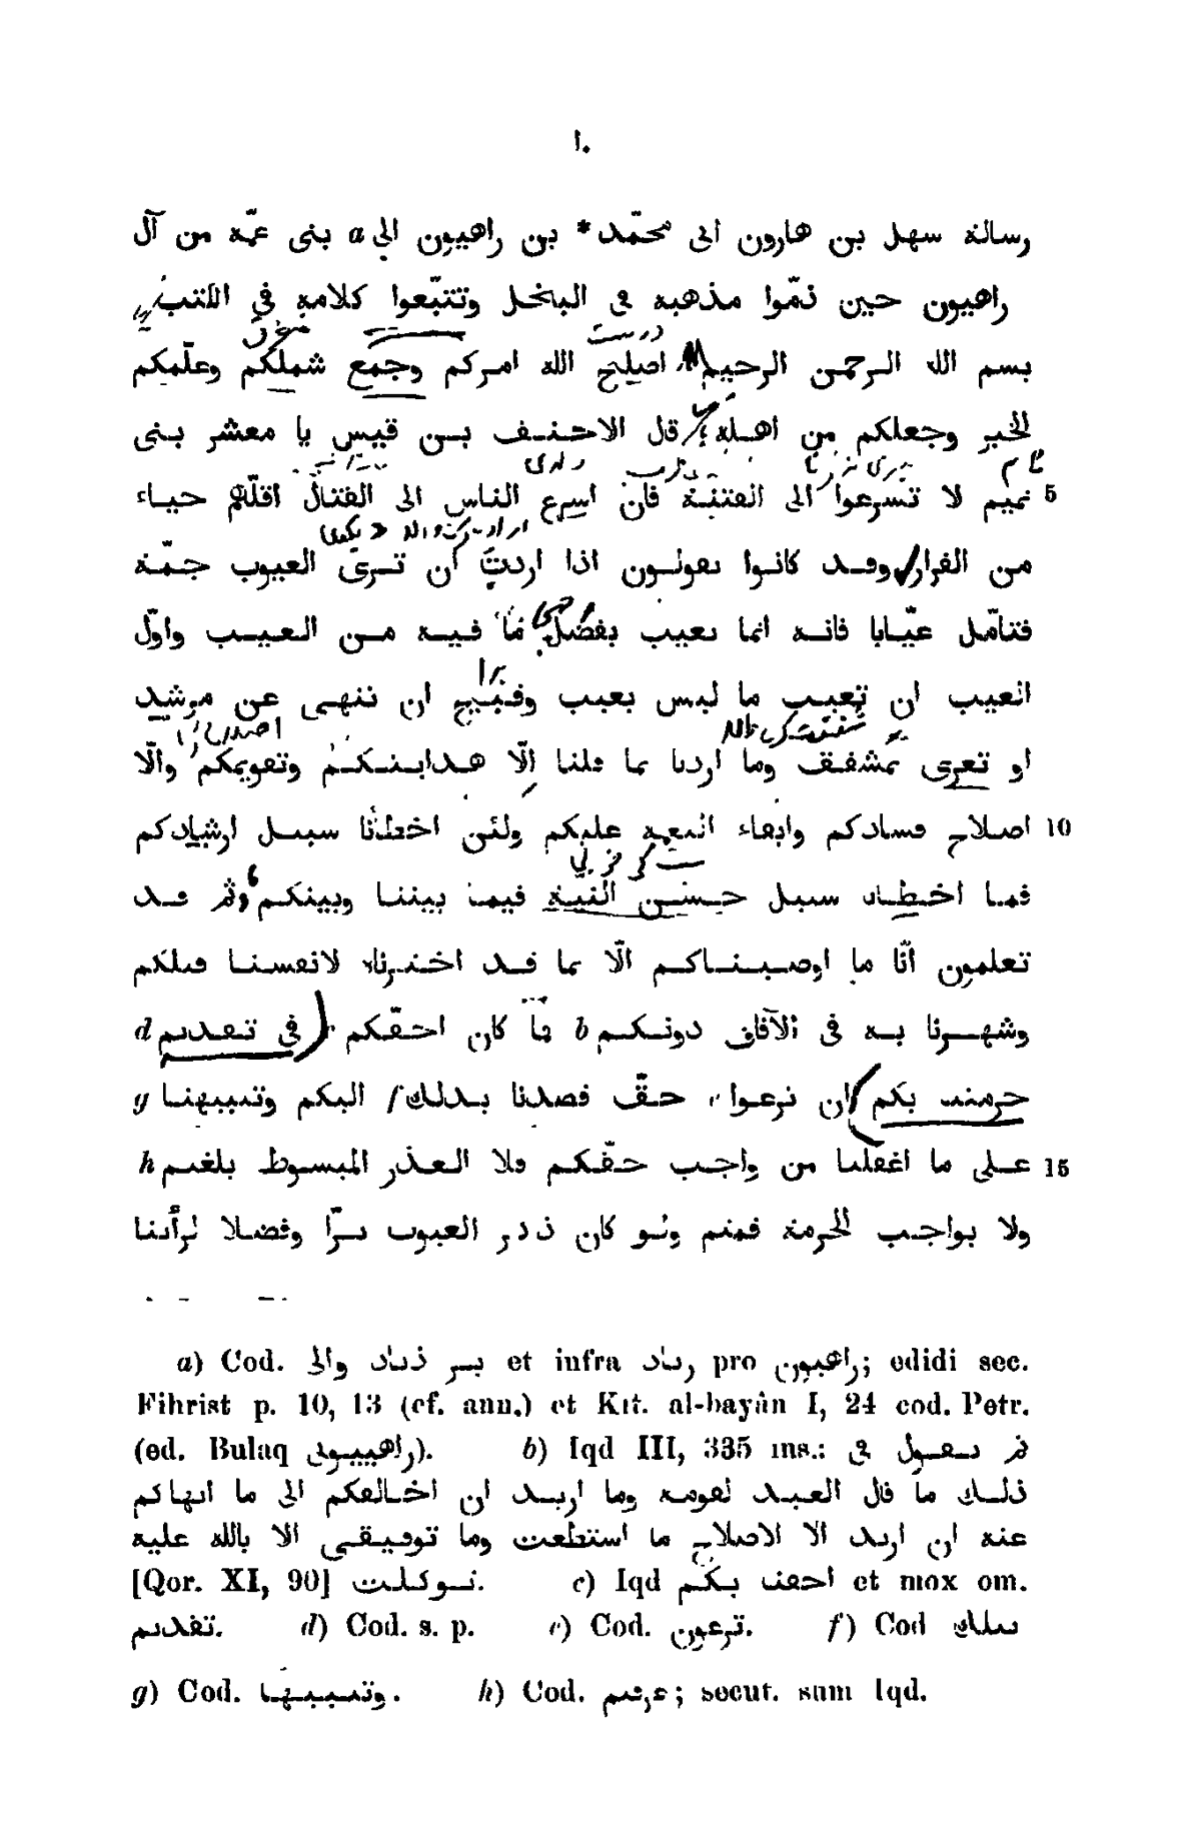 ١٠
رسالة سهل بن هارون الى محمّد* بن راهبون الى a بنى عمّه من آل
راهبون حين ذمّوا مذهبه فى البخل وتتبّعوا كلامه فى الكتب
بسم الله الرحمن الرحيم اصلح الله امركم وجمع شملكم وعلّمكم
الخير وجعلكم من اهله قال الاحنف بن قيس يا معشر بنى
تميم لا تسرعوا الى الفتنة فانّ اسرع الناس الى القتال اقلّهم حياء 5
من الفرار وقد كانوا يقولون اذا اردت ان ترى العيوب جمّة
فتأمّل عيّابا فانه انما يعيب بفضل ما فيه من العيب واوّل
العيب ان تعيب ما ليس بعيب وقبيح ان تنهى عن مرشد
او تغرى بمشفق وما اردنا بما قلنا الّا هدايتكم وتقويمكم والّا
اصلاح فسادكم وابقاء النعمة عليكم ولئن اخطأنا سبيل ارشادكم 10
فما اخطأنا سبيل حسن النية فيما بيننا وبينكم وثم قد
تعلمون انّا ما اوصيناكم الّا بما قد اخترناه لانفسنا قبلكم
وشهرنا به فى الآفاق دونكم b ما كان احقّكم فى تقديم d
حرمتنا بكم ان ترعوا e حقّ قصدنا بذلك f اليكم وتنبيهنا g
على ما اغفلنا من واجب حقّكم فلا العذر المبسوط بلغتم h 15
ولا بواجب الحرمة قمتم ولو كان ذكر العيوب برّا وفضلا لرأينا
a) Cod. والى زياد بن et infra زياد pro راهبون; edidi sec.
Fihrist p. 10, 13 (cf. ann.) et Kit. al-bayân I, 24 cod. Petr.
(ed. Bulaq راهيبونى). b) Iqd III, 335 ins.: ثم نقول فى
ذلك ما قال العبد لقومه وما اريد ان اخالفكم الى ما انهاكم
عنه ان اريد الا الاصلاح ما استطعت وما توفيقى الا بالله عليه
توكلت [Qor. XI, 90]. c) Iqd احقنا بكم et mox om.
تقديم. d) Cod. s. p. e) Cod. ترعون. f) Cod
g) Cod. h) Cod. ; secut. sum Iqd.